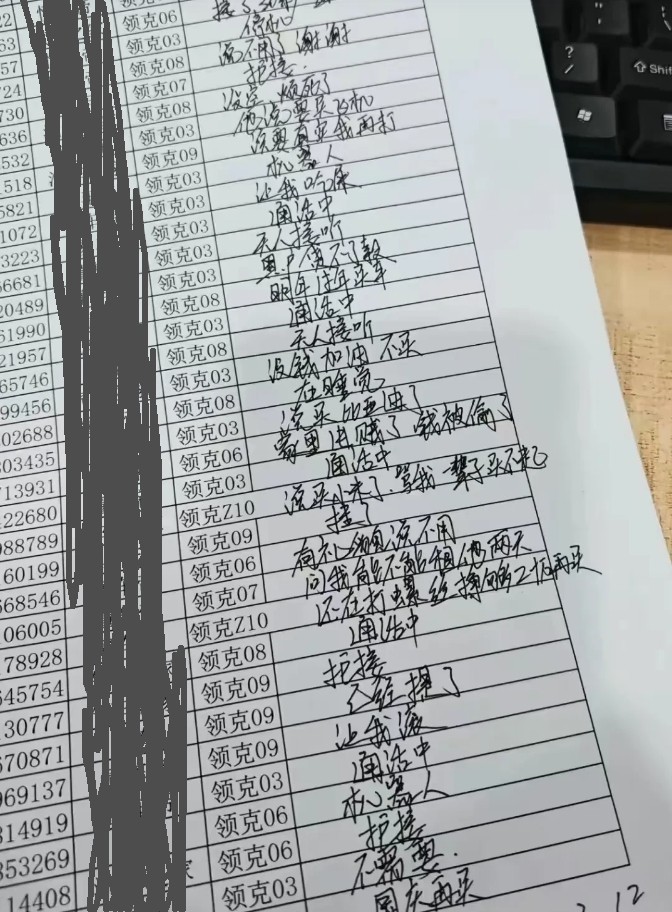 22 领克06 接了
563 领克03 停机
557 领克08 说不用了 谢谢
724 领克07 拒接.
730 领克08 没空 烦死了
636 领克03 他说要买飞机
532 领克09 说要有空我再打
1518 领克03 机器人
5821 领克03 让我
1072 领克03 通话中
3223 领克03 无人接听
6681 领克03
20489 领克08 明年 买车
61990 领克03 通话中
21957 领克08 无人接听
65746 领克03 没钱加油 不买
99456 领克08 在睡觉
02688 领克03 说买比亚迪了
303435 领克06 家里出贼了 钱被偷了
713931 领克03 通话中
422680 领克Z10 说买小米了 骂我一辈子买不起
988789 领克09 挂了
160199 领克06 有礼貌说不用
568546 领克07 问我能不能租他两天
106005 领克Z10 还在打螺丝 攒够工协再买
178928 领克08 通话中
645754 领克09 拒接
130777 领克09 已经换了
670871 领克09 让我滚
969137 领克03 通话中
314919 领克06 机器人
353269 领克06 拒接
14408 领克03 不需要.
国庆再买
12
? /
Shift